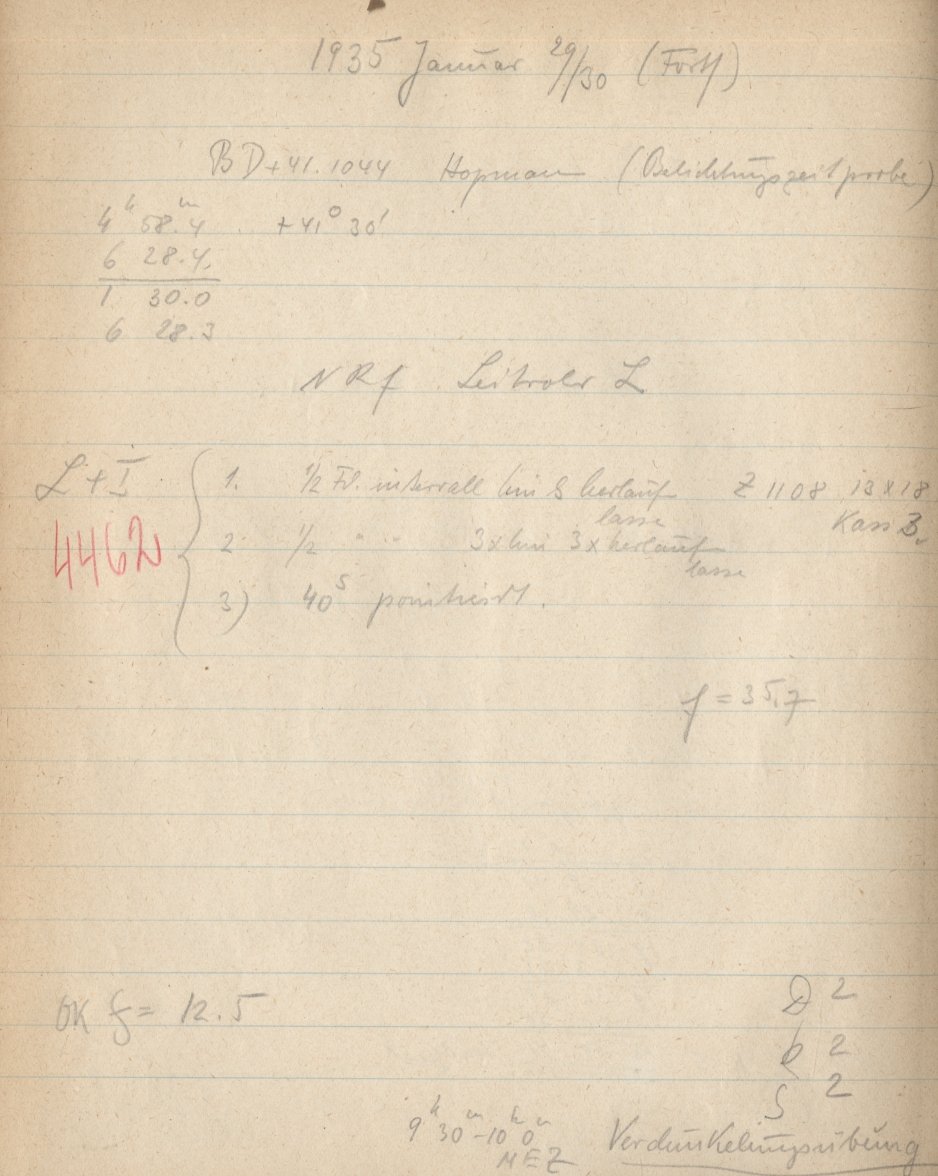 1935 Januar 29/30 (Forts)
BD+41.1044 Hopmann (Belichtungszeitprobe)
4h 58m.4 +41° 30'
6 28.4
1 30.0
6 28.3
NRf Leitrohr L
L + I
4462
1. 1/2 Fd. intervall hin & herlauf Z 1108 13x18
lasse Kass B
2 1/2 " " 3x hin 3x herlauf
lasse
3) 40s pointiert.
f = 35,7
OK f = 12.5
D 2
2
S 2
9h 30m - 10h 0m Verdunkelungsübung
MEZ